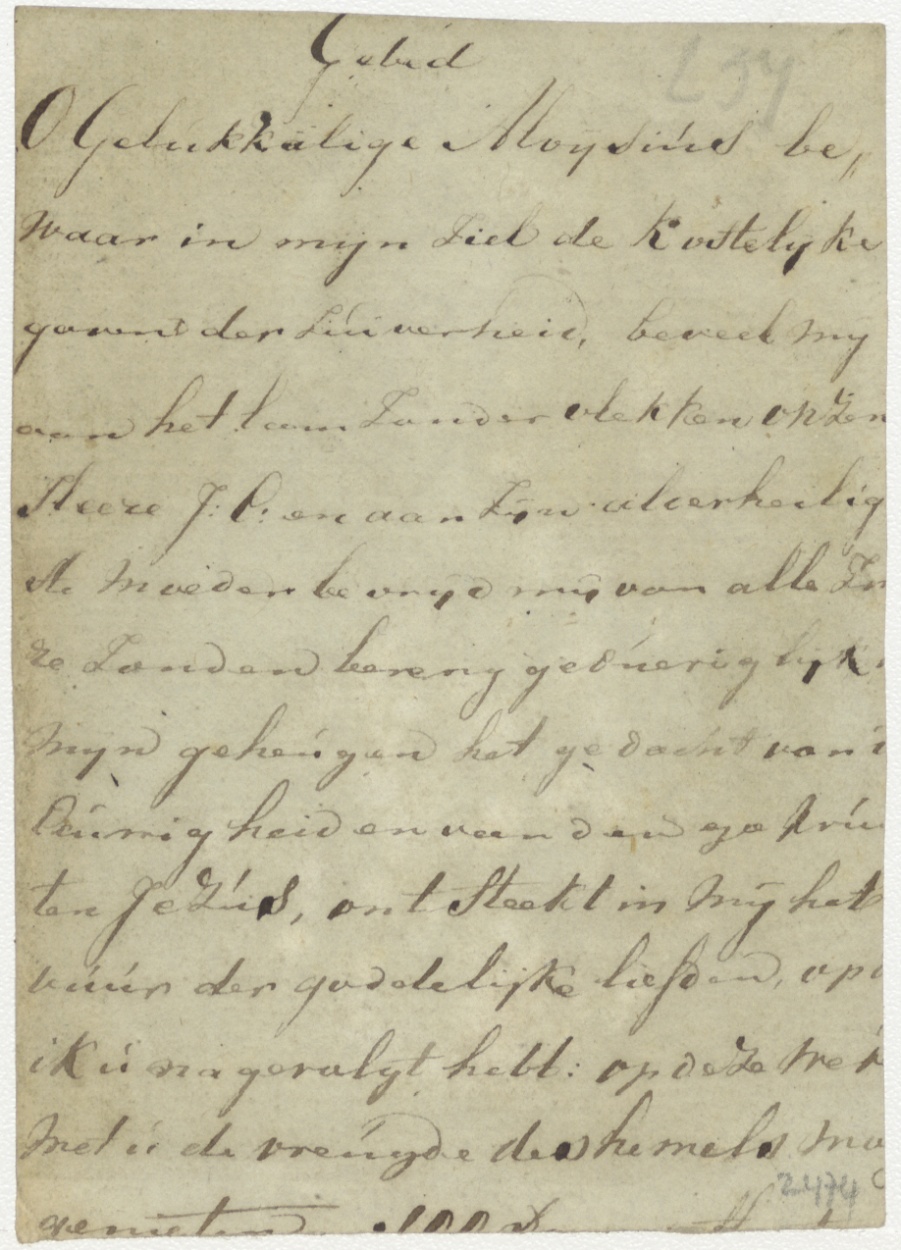 Gebed
O Gelukkalige Aloysius be„
waar in myn Ziel de Kostelyke
gavens der Zuiverheid, beveel my
aan het lam Zonder vlekken onzen
Heere J: C: en aan Zyn alderheilig
ste Moeder be vryd my van alle
Zonden breng geduerig lyk
Myn geheugen het gedacht van
Eeuwigheid en van den gekrui
ten JeZus, ont Steekt in My het
vuur der goddelijke liefden, op
ik u nagevolgt hebt: op deZe
Met u de vreugde des hemels Mo
genieten 100 D
254
2474